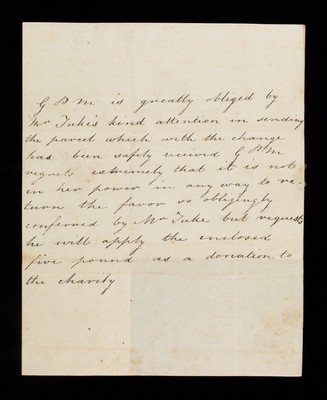 G P M. is greatly obliged by
Mr Tuke's kind attention in sending
the parcel which with the change
has been safely received G P M
regrets extremely that it is not
in her power in any way to re-
turn the favor so obligingly
conferred by Mr Tuke but requests
he will apply the enclosed
five pound as a donation to
the charity